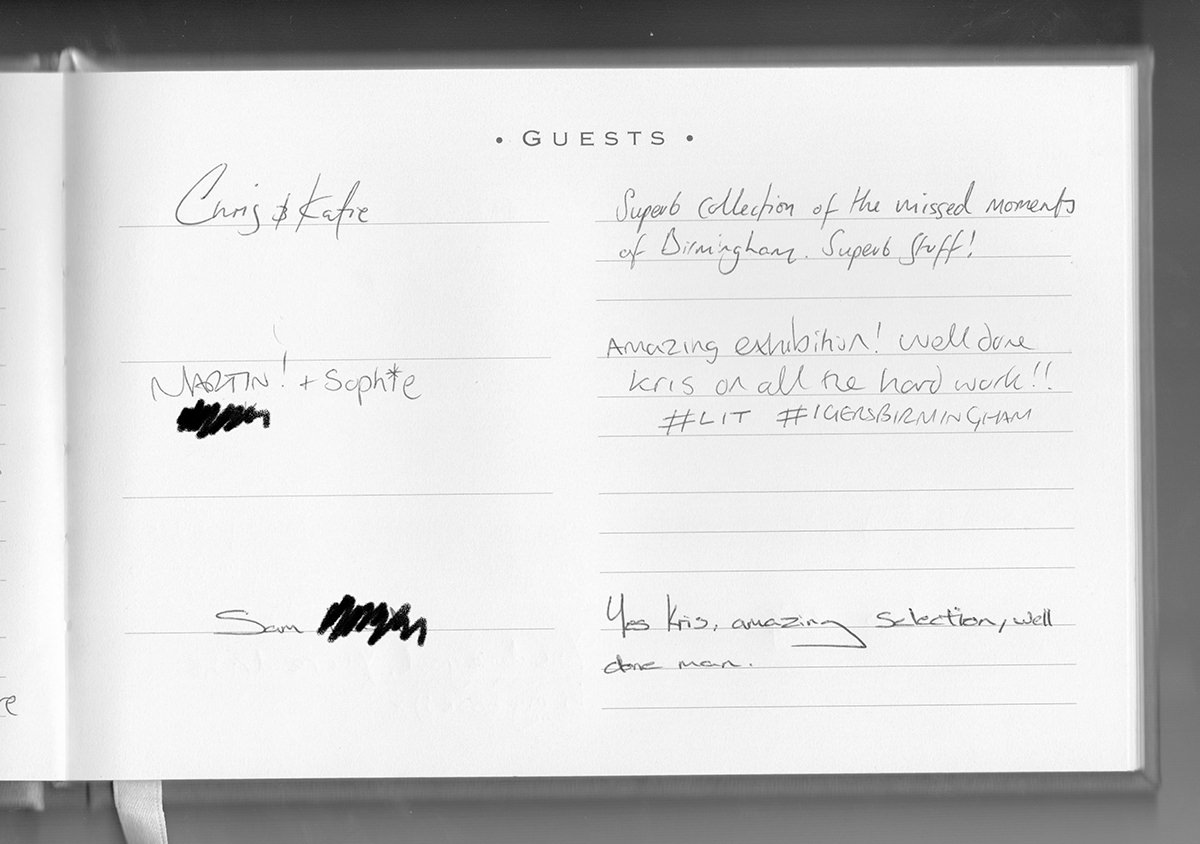 • GUESTS •
Chris & Katie
Superb collection of the missed moments
of Birmingham. Superb stuff!
MARTIN! + Soph*e
Amazing exhibition! Well done
Kris on all the hard work!!
#LIT #IGERSBIRMINGHAM
Sam
Yes Kris, amazing selection, well
done man.